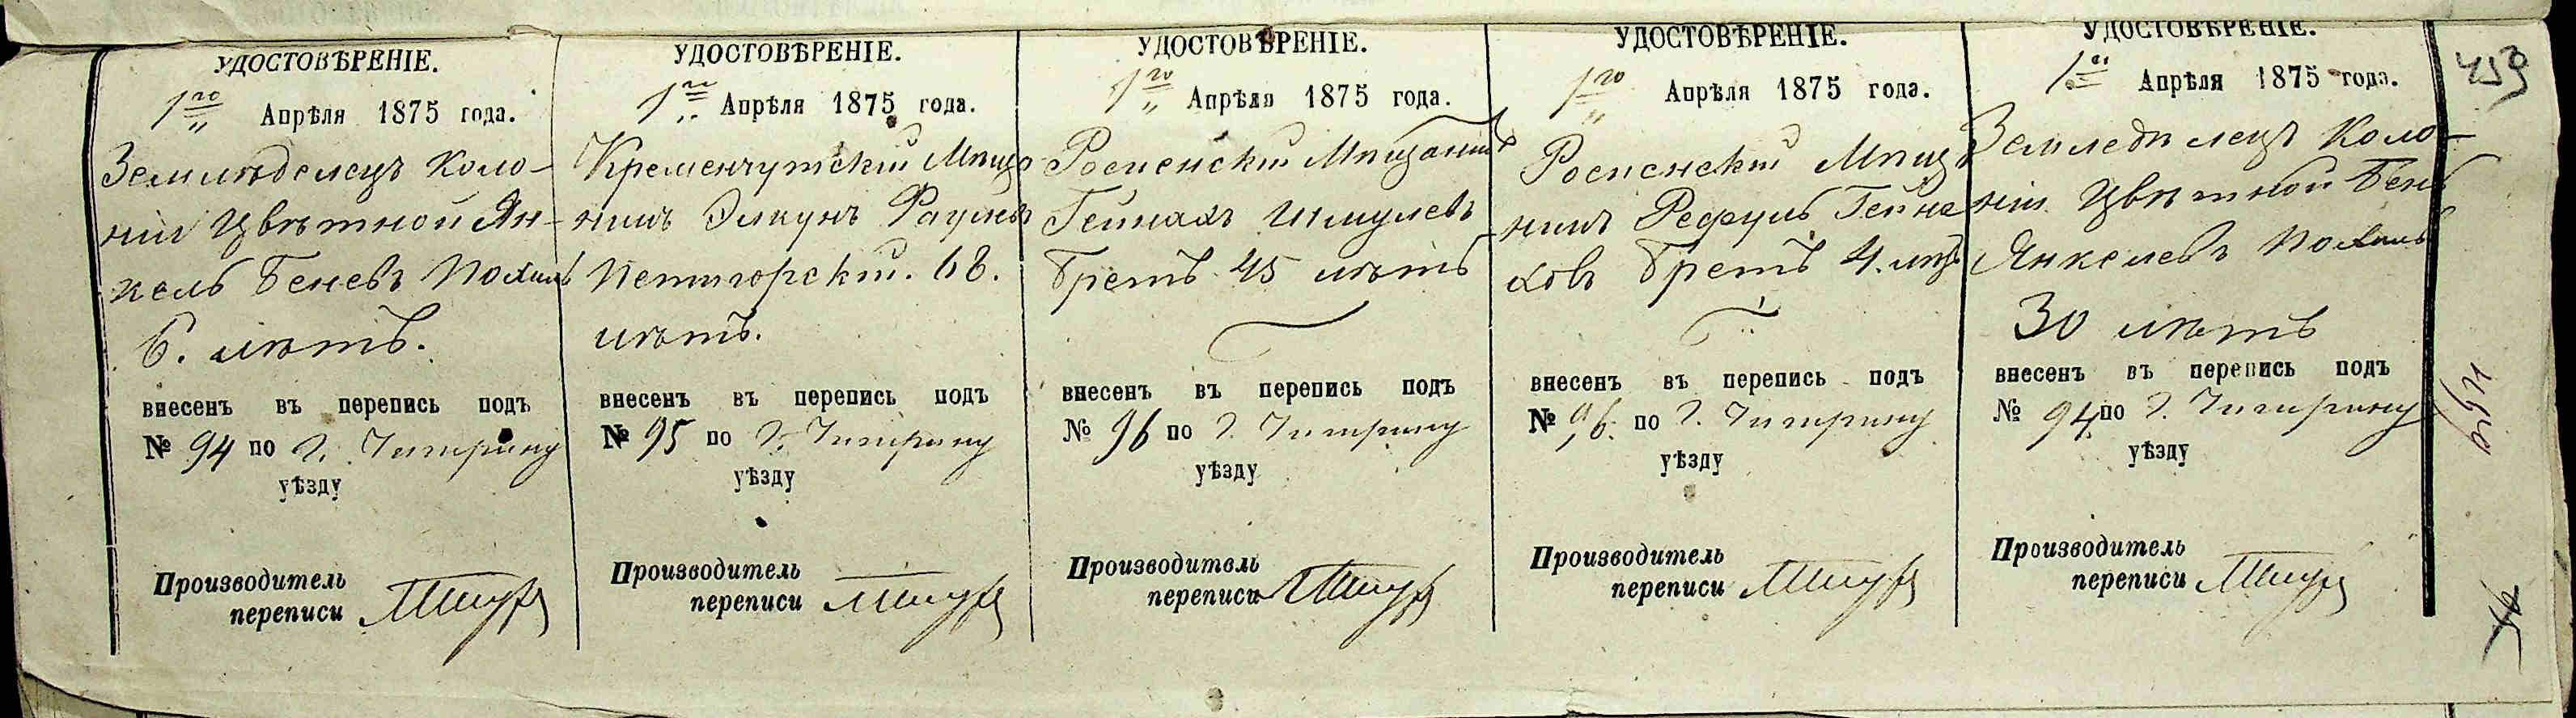 УДОСТОВѢРЕНІЕ.
1го Апрѣля 1875 года.
Землѣделецъ Коло-
ніи Цвѣтной Ян-
кель Беневъ
6. лѣтъ.
внесенъ въ перепись подъ
№ 94 по г. Чигирину
уѣзду
Производитель
переписи
УДОСТОВѢРЕНІЕ.
1го Апрѣля 1875 года.
Кременчугскій Мѣща
нинъ
Петигорскій. 68.
лѣтъ.
внесенъ въ перепись подъ
№ 95 по г. Чигирину
уѣзду
Производитель
переписи
УДОСТОВѢРЕНІЕ.
1го Апрѣля 1875 года.
Росиенскій Мѣщанинъ
Гейнахъ Шмулевъ
Бретъ 45 лѣтъ
внесенъ въ перепись подъ
№ 96 по г. Чигирину
уѣзду
Производитель
переписи
УДОСТОВѢРЕНІЕ.
1го Апрѣля 1875 года.
Росиенскій Мѣща
нинъ Гейна
ховъ Бретъ 4. лѣтъ
внесенъ въ перепись подъ
№ 96. по г. Чигирину
уѣзду
Производитель
переписи
УДОСТОВѢРЕНІЕ.
1го Апрѣля 1875 года.
Земледѣлецъ Коло-
ніи Цвѣтной Бень
Янкелевъ
30 лѣтъ
внесенъ въ перепись подъ
№ 94. по г. Чигирину
уѣзду
Производитель
переписи
459